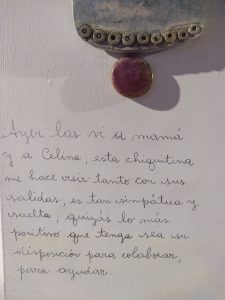 Ayer las vi a mamá
y a Celina, esta chiquitina
me hace reir tanto con sus
salidas, es tan simpática y
suelta, quizás lo más
positivo que tenga sea su
disposición para colaborar,
para ayudar.